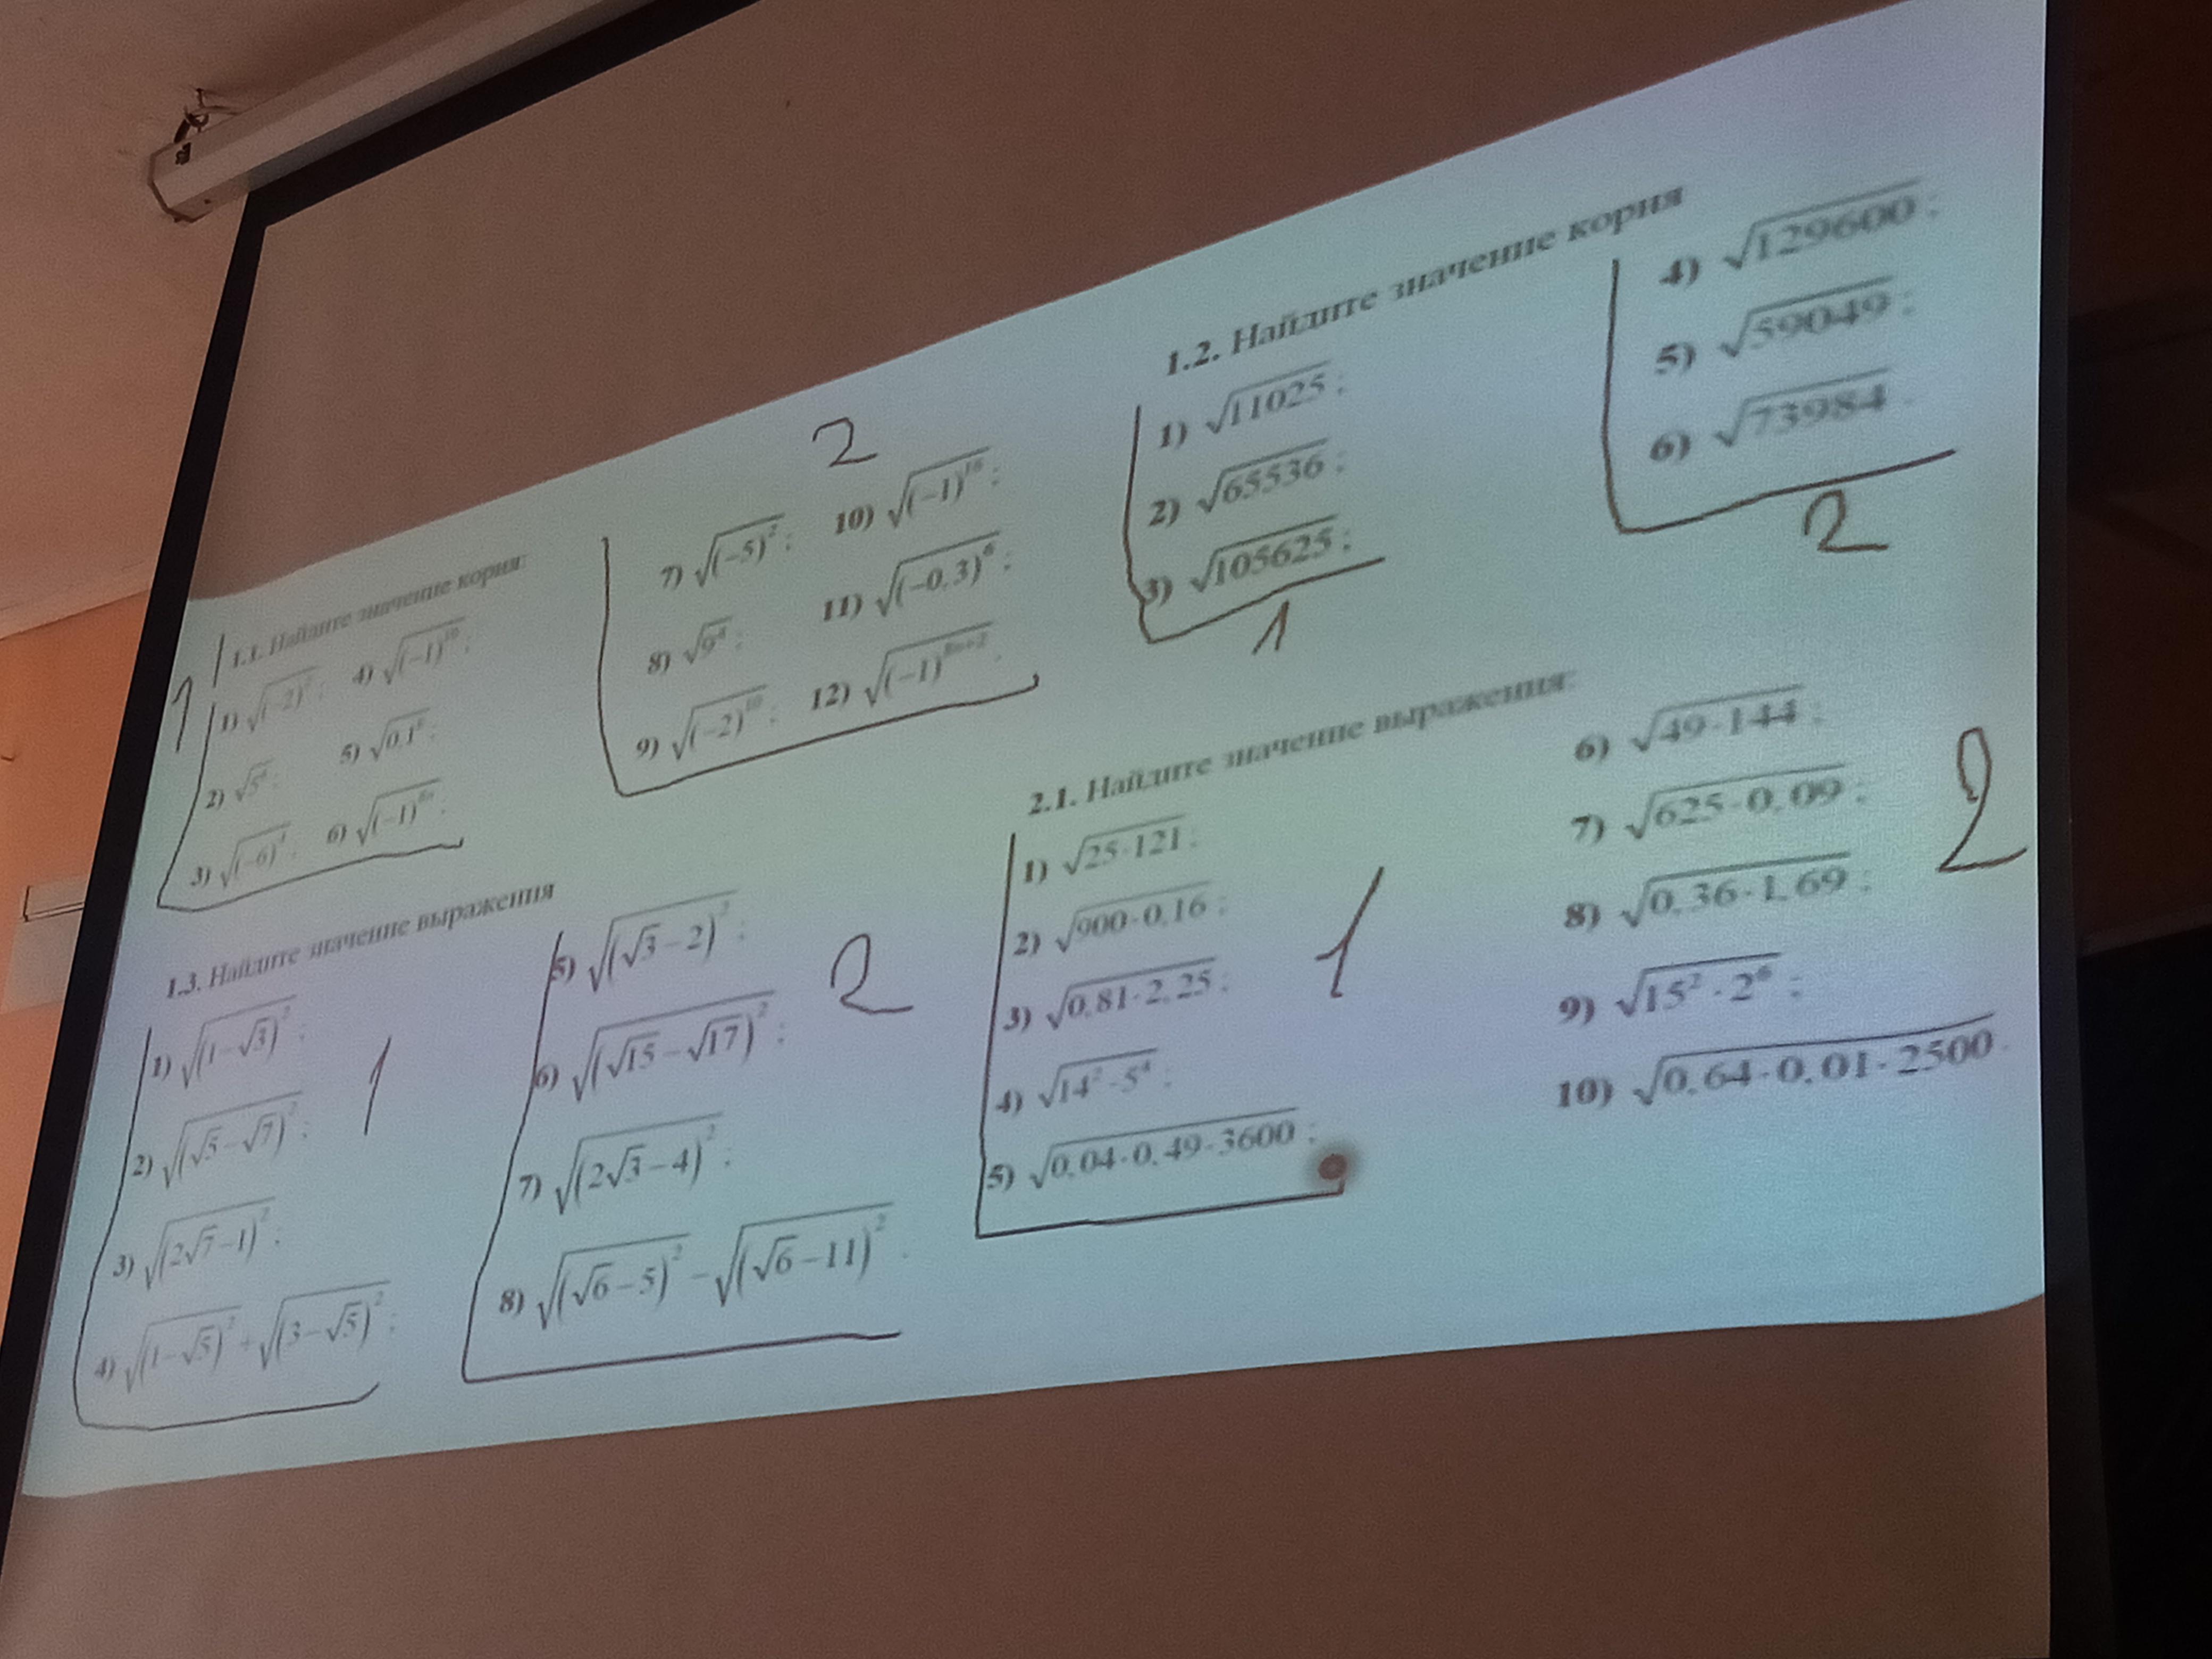 1
1.1. Найдите значение корня:
1) √(−2)² ; 4) √(−1)¹⁰ ;
2)
5)
3) √(−6)⁴ ; 6)
2
7) √(−5)² ; 10)
8) 11) √(−0,3)⁶ ;
9) √(−2)¹⁰ ; 12) √(−1)⁸ⁿ⁺² .
1.2. Найдите значение корня
1) √11025 ;
2) √65536 ;
3) √105625 ;
1
4) √129600 ;
5) √59049 ;
6) √73984 .
2
1.3. Найдите значение выражения
1) √(1−√3)² ;
2) √(√5−√7)² ;
3) √(2√7−1)² ;
4) √(1−√5)² + √(3−√5)² ;
1
5) √(√3−2)² ;
6) √(√15−√17)² ;
7) √(2√3−4)² ;
8) √(√6−5)² − √(√6−11)² .
2
2.1. Найдите значение выражения:
1) √25·121 ;
2) √900·0,16 ;
3) √0,81·2,25 ;
4) √14²·5⁴ ;
5) √0,04·0,49·3600 ;
1
6) √49·144 ;
7) √625·0,09 ;
8) √0,36·1,69 ;
9) √15²·2⁶ ;
10) √0,64·0,01·2500 .
2